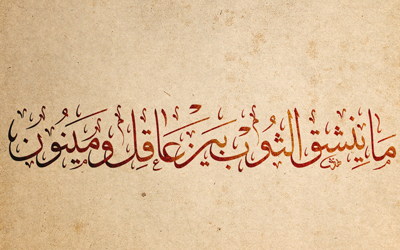 مَا يِنشق الثُوب بَين عَاقِل ومَينُون